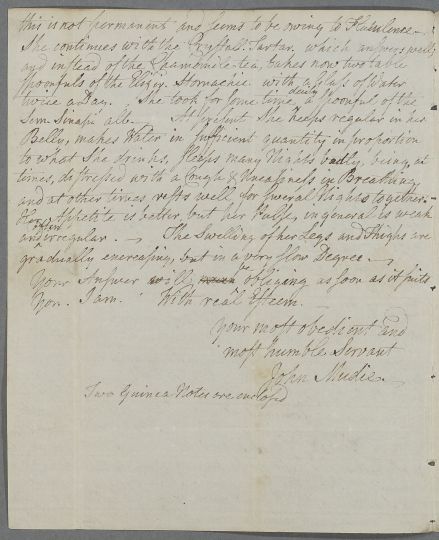 this is not permanent and seems to be owing to Flatulence.
She continues with the Crystall. Tartar. which answers well;
and instead of the Chamomile-tea, takes now two table
spoonfuls of the Elixir. Stomachic with a glass of Water
twice a Day. She took for some time, daily a spoonful of the
Sem. Sinapi alb. At present She keeps regular in her
Belly, makes Water in sufficient quantity in proportion
to what She drinks, sleeps many Nights badly, being, at
times, distressed with a Cough & Uneasiness in Breathing
and at other times rests well for several Nights together.
Her Appetite is better, but her Pulse, in general is weak
and often irregular. The Swelling of her Legs and Thighs are
gradually encreasing, but in a very slow Degree.
Your Answer will be obliging as soon as it suits
You. I am. With real Esteem
Your most obedient and
most humble Servant
John Mudie
Two Guinea Notes are enclosed